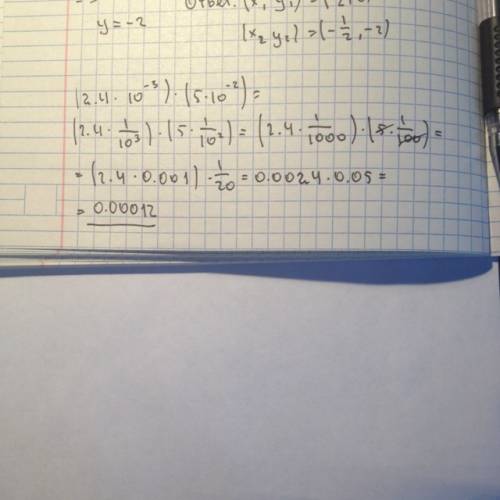 Ответ: (x, y₁) =
y = -2
(x₂ y₂) = (-1/2, -2)
(2.4 · 10⁻³) · (5 · 10⁻²) =
(2.4 · 1/10³) · (5 · 1/10²) = (2.4 · 1/1000) · (5 · 1/100) =
= (2.4 · 0.001) · 1/20 = 0.0024 · 0.05 =
= 0.00012